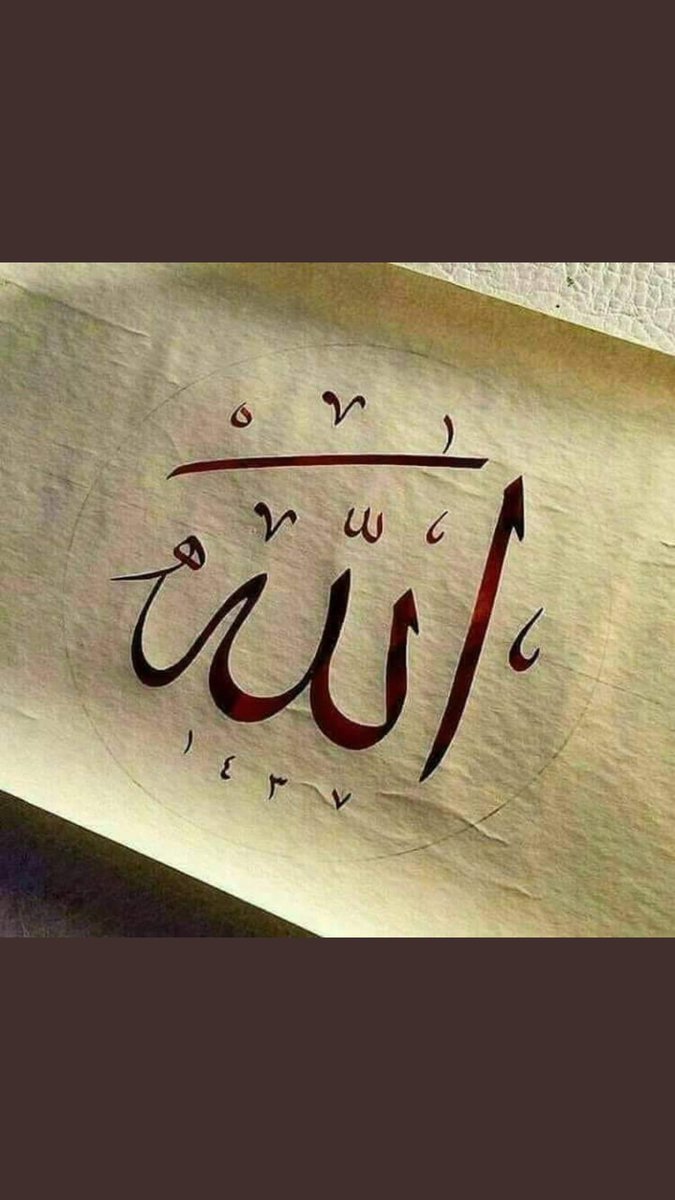 الله
١٤٣٧